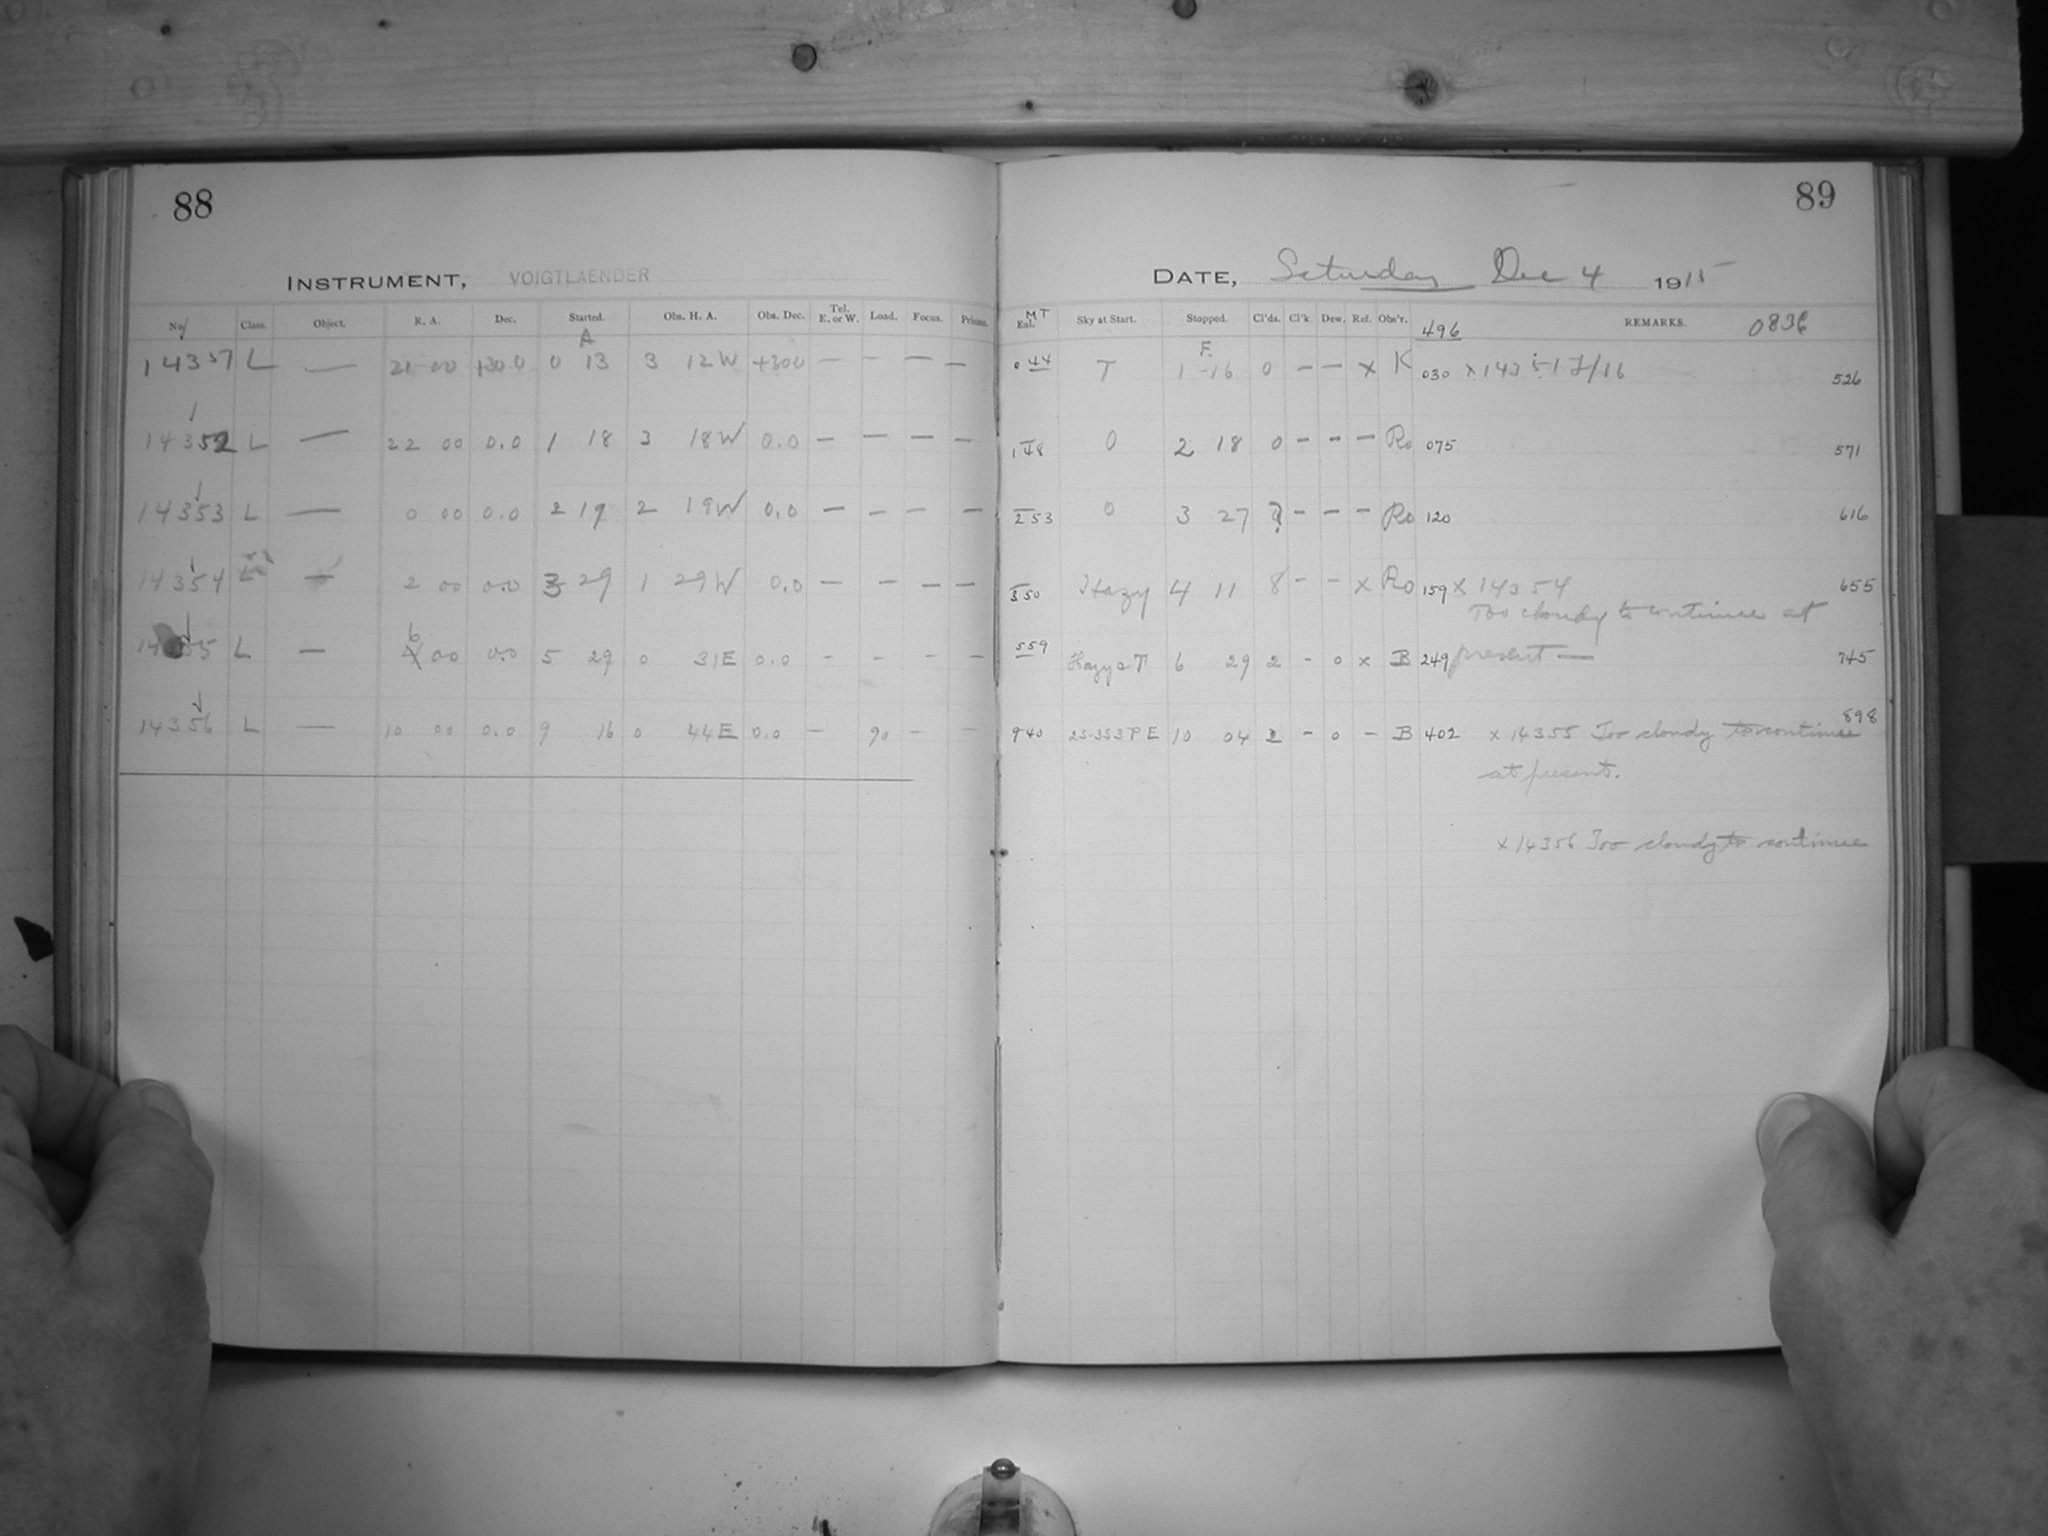 88
INSTRUMENT, VOIGTLAENDER
No. Class. Object. R. A. Dec. Started. Obs. H. A. Obs. Dec. Tel. E. or W. Load. Focus. Prisms.
A
14357 L — 21 00 +30.0 0 13 3 12 W +300 — — —
14352 L — 22 00 0.0 1 18 3 18 W 0.0 — — — —
14353 L — 0 00 0.0 2 19 2 19 W 0.0 — — — —
14354 L — 2 00 0.0 3 29 1 29 W 0.0 — — — —
6
L — 00 0.0 5 29 0 31 E 0.0 - - - -
14356 L — 10 00 0.0 9 16 0 44 E 0.0 - 90 - -
89
DATE, Saturday Dec 4 1915
MT
Eal. Sky at Start. Stopped. Cl'ds. Cl'k. Dew. Ref. Obs'r. 496 REMARKS.
F.
0 44 T 1 16 0 — — x K 030 526
1 48 0 2 18 0 - - - Ro 075 571
2 53 0 3 27 ? - - - Ro 120 616
3 50 Hazy 4 11 8 - - x Ro 159 x 14354 655
Too cloudy to continue at
5 59 Hazy & T 6 29 2 - 0 x B 249 present — 745
898
9 40 25-353 P E 10 04 2 - 0 - B 402 x 14355 Too cloudy to continue
at present.
x 14356 Too cloudy to continue